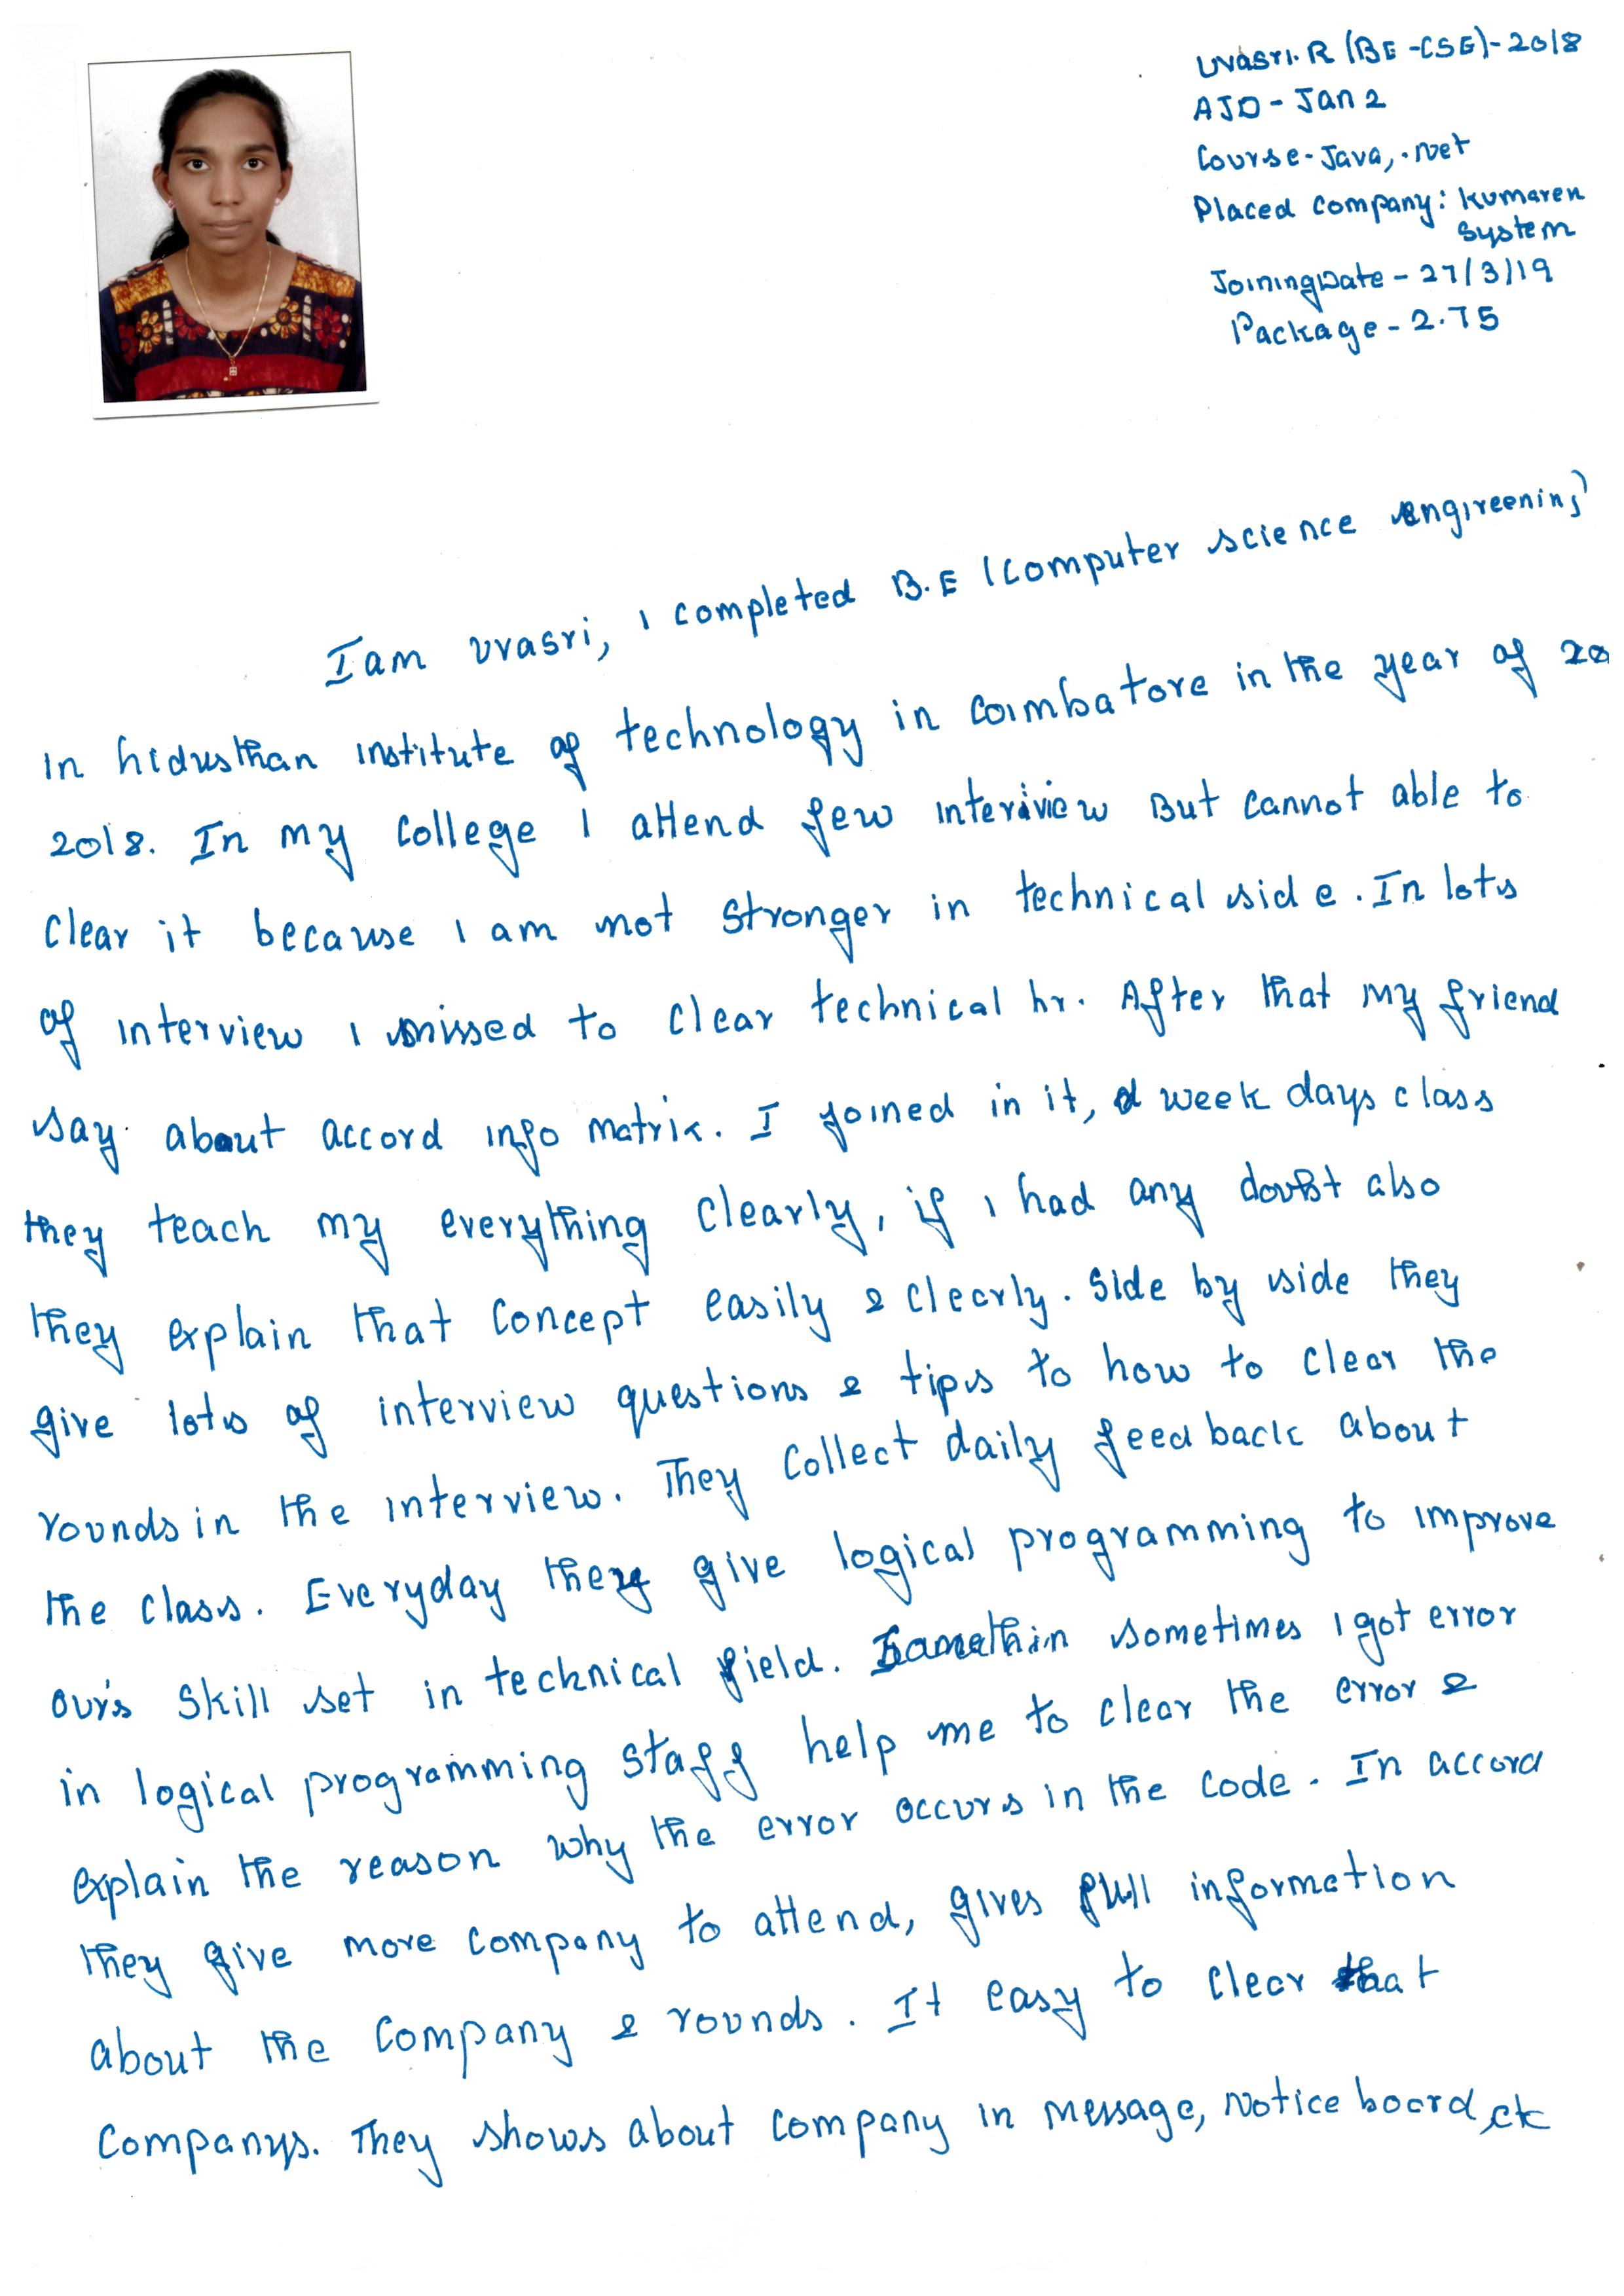 Uvasri.R (BE -CSE)-2018
AJD - Jan 2
Course-Java, .net
Placed Company: Kumaren
System
JoiningDate - 27/3/19
Package - 2.75
I am uvasri, I completed B.E (Computer science engireening)
In hidusthan institute of technology in Coimbatore in the year of 20
2018. In my college I attend few interiview But cannot able to
clear it because I am not stronger in technical side. In lots
of interview I missed to clear technical hr. After that my friend
say about accord info matrix. I joined in it, week days class
they teach my everything clearly, if i had any doubt also
they explain that concept easily & clearly. Side by side they
give lots of interview questions & tips to how to clear the
rounds in the interview. They collect daily feedback about
the class. Everyday they give logical programming to improve
our's skill set in technical field. sometimes I got error
in logical programming staff help me to clear the error &
explain the reason why the error occurs in the code. In accord
they give more company to attend, gives full information
about the company & rounds. It easy to clear that
companys. They shows about company in message, Notice board,